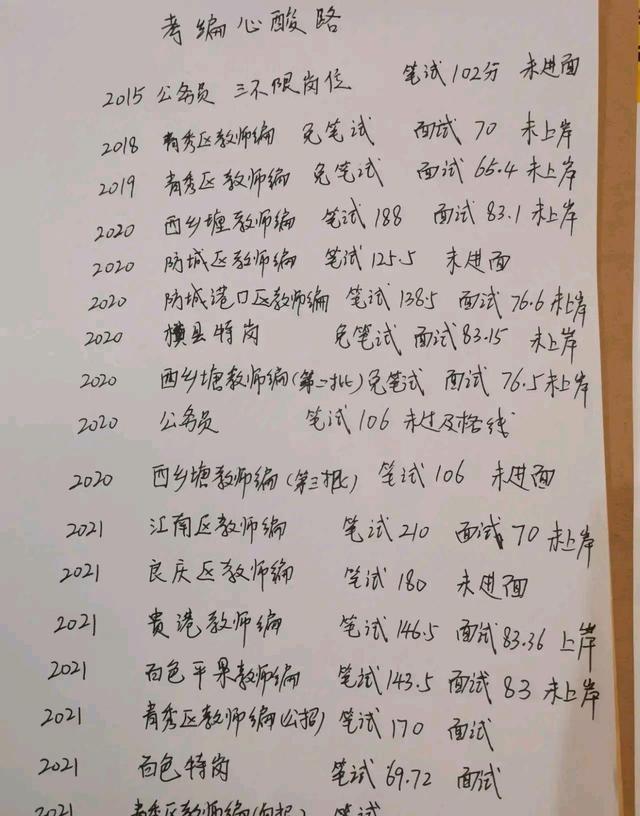 考编心酸路
2015 公务员 三不限岗位 笔试102分 未进面
2018 青秀区教师编 免笔试 面试 70 未上岸
2019 青秀区教师编 免笔试 面试 65.4 未上岸
2020 西乡塘教师编 笔试188 面试83.1 未上岸
2020 防城区教师编 笔试125.5 未进面
2020 防城港口区教师编 笔试138.5 面试76.6 未上岸
2020 横县特岗 免笔试 面试83.15 未上岸
2020 西乡塘教师编(第二批)免笔试 面试 76.5 未上岸
2020 公务员 笔试106 未过及格线
2020 西乡塘教师编(第三批) 笔试106 未进面
2021 江南区教师编 笔试210 面试70 未上岸
2021 良庆区教师编 笔试180 未进面
2021 贵港教师编 笔试146.5 面试83.36 上岸
2021 百色平果教师编 笔试143.5 面试83 未上岸
2021 青秀区教师编(公招) 笔试170 面试
2021 百色特岗 笔试69.72 面试
2021 青秀区教师编( 笔试